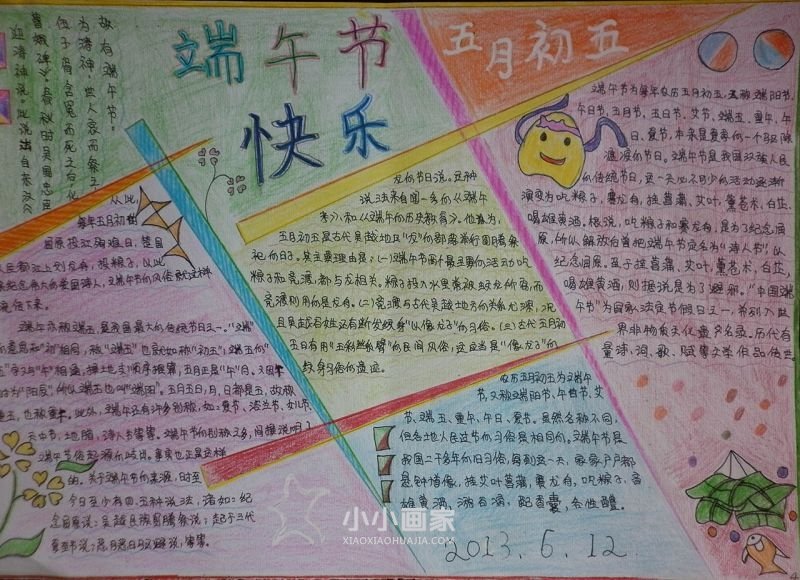 端午节
快乐
五月初五
故有端午节。
为涛神，世人哀而祭之，
伍子胥含冤而死之后化
曹娥碑》。春秋时吴国忠臣
迎涛神说。此说出自东汉《
从此，
每年五月初五
屈原投江殉难日，楚国
人民都江上划龙舟，投粽子，以此
来纪念伟大的爱国诗人，端午节的风俗就这样
流传下来。
端午亦称端五
的意思和“初”相同，称“端五”也就如称“初五”；端五的“
五”字与“午”相通，按地支顺序推算，五月正是“午”月。又因午
时为“阳辰”，所以端五也叫“端阳”。五月五日，月、日都是五，故称
重五，也称重午。此外，端午还有许多别称，如：夏节、浴兰节、女儿节、
天中节、地腊、诗人节等等。端午节的别称之多，间接说明了
端午节俗起源的歧出。事实也正是这样
的。关于端午节的来源，时至
今日至少有四、五种说法，诸如：纪
念屈原说；吴越民族图腾祭说；起于三代
夏至节说；恶月恶日驱避说，等等。
龙的节日说。这种
说法来自闻一多的《端午
考》和《端午的历史教育》。他认为，
五月初五是古代吴越地区“龙”的部落举行图腾祭
祀的日子。其主要理由是：（一）端午节两个最主要的活动吃
粽子和竞渡，都与龙相关。粽子投入水里常被蛟龙所窃，而
竞渡则用的是龙舟。（二）竞渡与古代吴越地方的关系尤深，况
且吴越百姓还有断发纹身“以像龙子”的习俗。（三）古代五月初
五日有用“五彩丝系臂”的民间风俗，这应当是“像龙子”的
纹身习俗的遗迹。
端午节为每年农历五月初五，又称端阳节、
午日节、五月节、五日节、艾节、端五、重午、午
日、夏节，本来是夏季的一个驱除
瘟疫的节日。端午节是我国汉族人民
的传统节日，这一天必不可少的活动逐渐
演变为吃粽子，赛龙舟，挂菖蒲、艾叶，薰苍术、白芷，
喝雄黄酒。据说，吃粽子和赛龙舟，是为了纪念屈
原，所以解放后曾把端午节定名为“诗人节”，以
纪念屈原。至于挂菖蒲、艾叶，薰苍术、白芷，
喝雄黄酒，则据说是为了避邪。“中国端
午节”为国家法定节假日之一，并列入世
界非物质文化遗产名录。历代有
大量诗、词、歌、赋等文学作品传世。
农历五月初五为端午
节，又称端阳节、午日节、艾
节、端五、重午、午日、夏节。虽然名称不同，
但各地人民过节的习俗是相同的。端午节是
我国二千多年的旧习俗，每到这一天，家家户户都
悬钟馗像，挂艾叶菖蒲，赛龙舟，吃粽子，饮
雄黄酒，游百病，佩香囊，备牲醴。
2013.6.12
小小画家
XIAOXIAOHUAJIA.COM